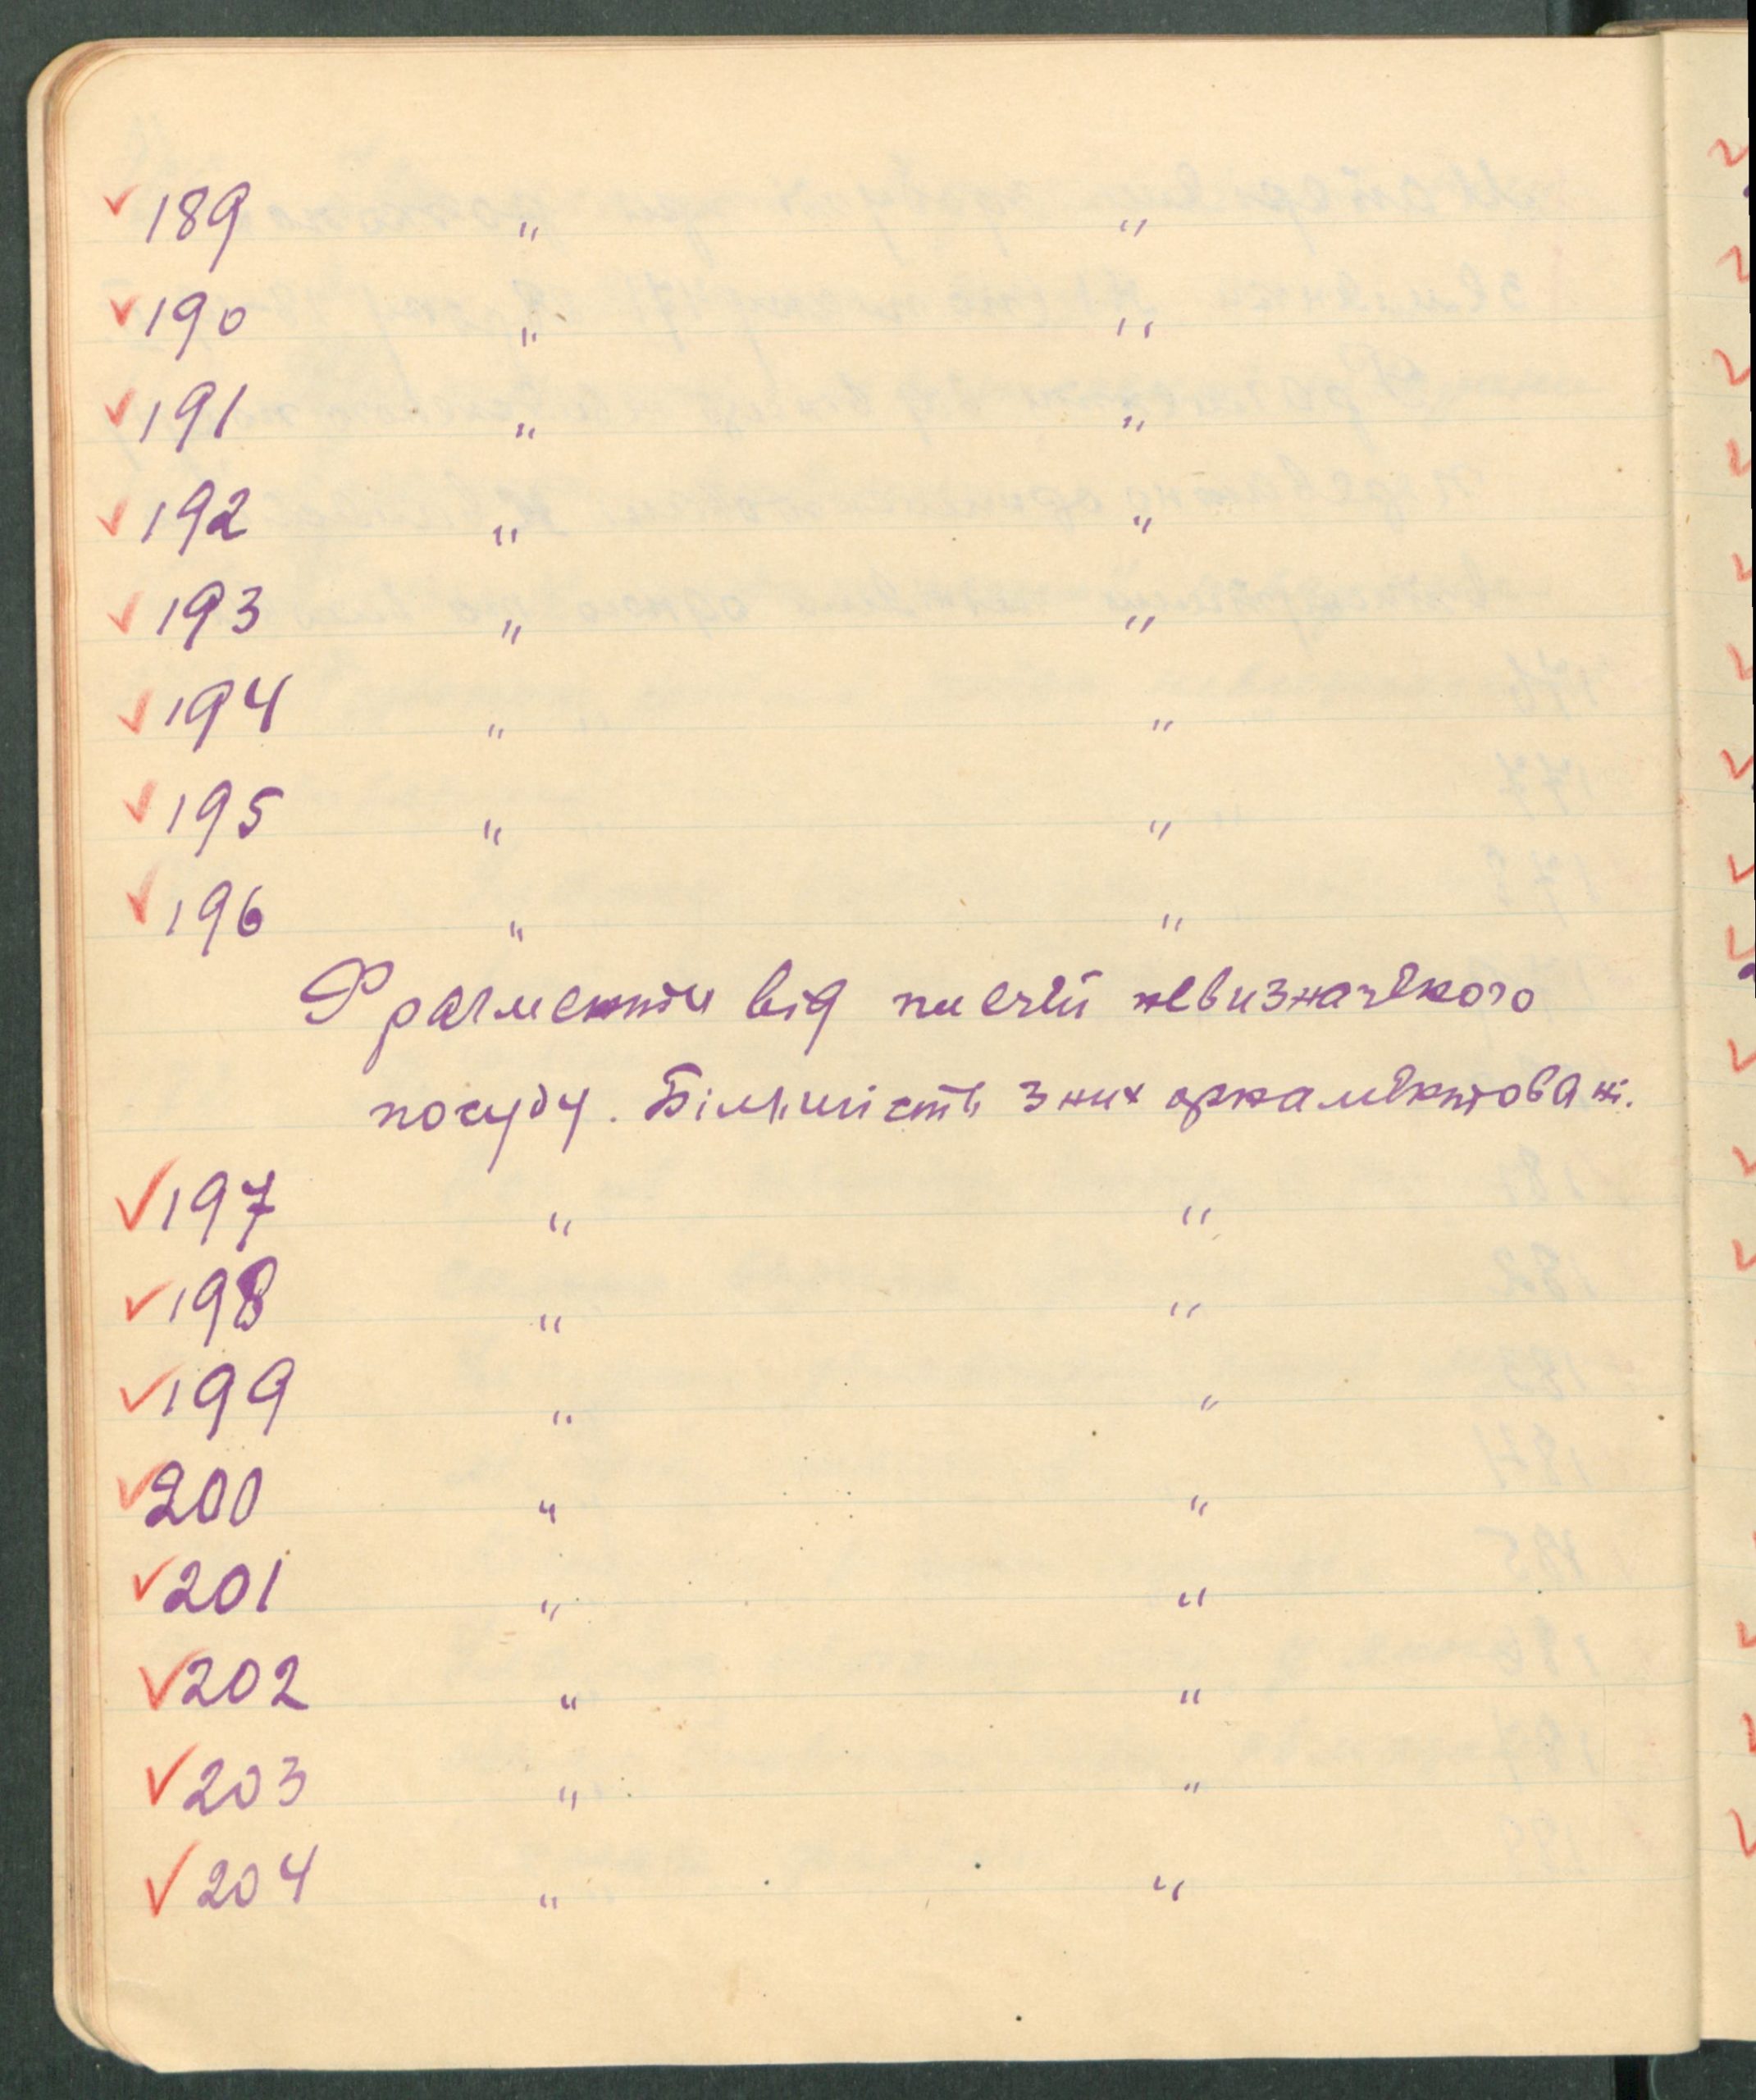 ✓ 189 " "
✓ 190 " "
✓ 191 " "
✓ 192 " "
✓ 193 " "
✓ 194 " "
✓ 195 " "
✓ 196 " "
Фрагменти від плечій невизначеного
посуду. Більшість з них орнаментовані.
✓ 197 " "
✓ 198 " "
✓ 199 " "
✓ 200 " "
✓ 201 " "
✓ 202 " "
✓ 203 " "
✓ 204 " "